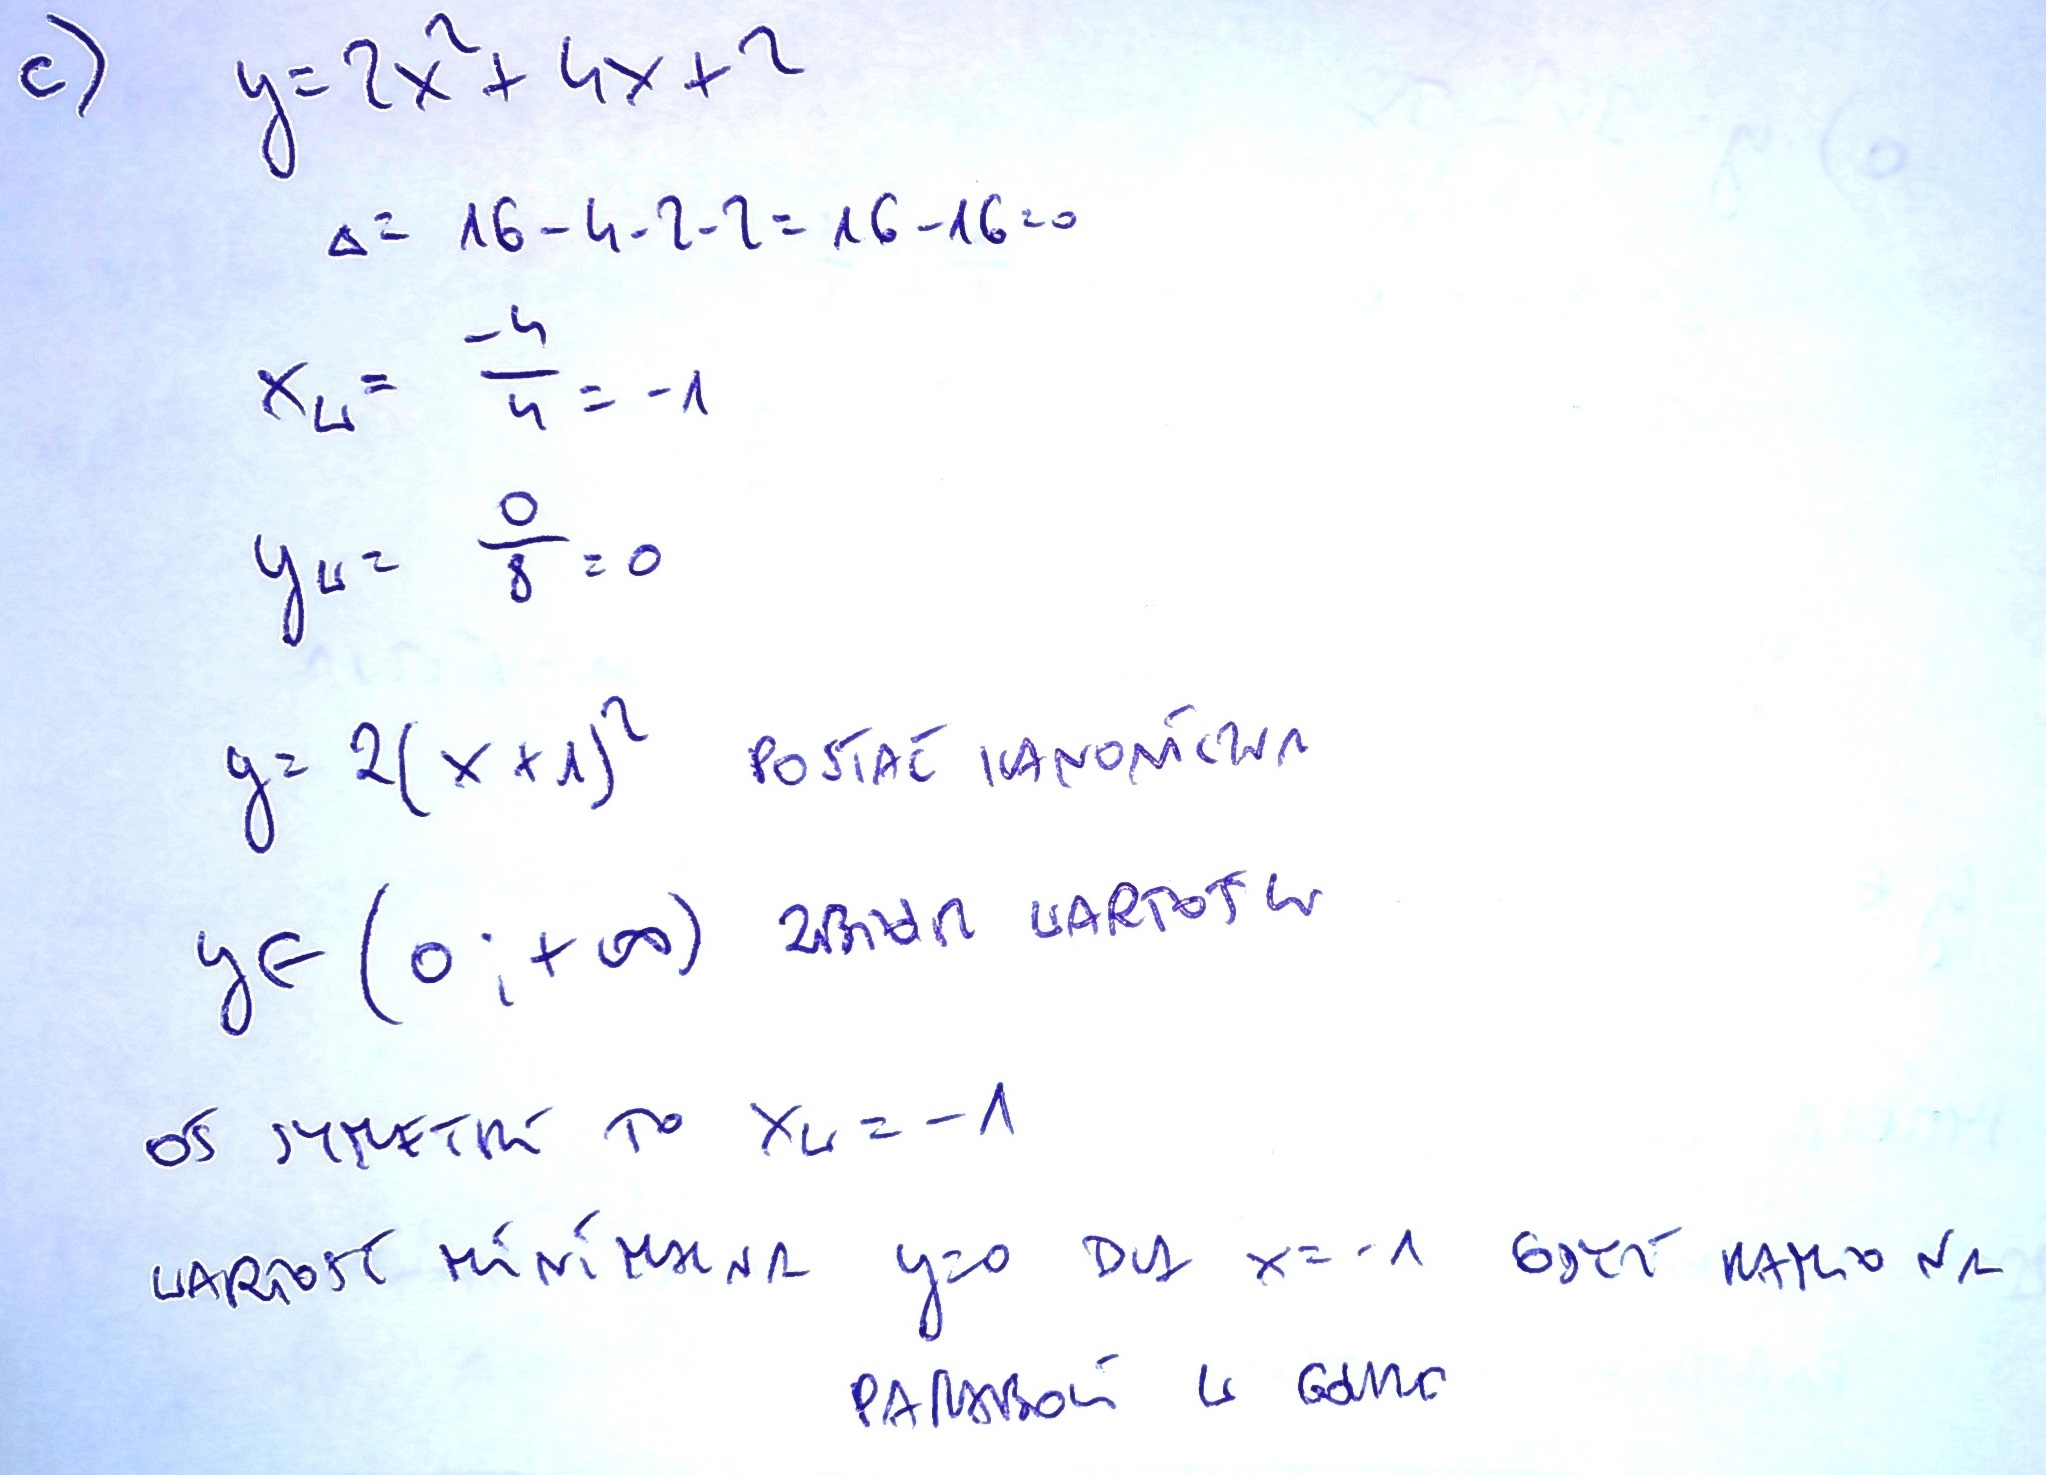 c) y=2x²+4x+2
Δ= 16-4·2·2=16-16=0
x_w= -4/4 = -1
y_w= 0/8 = 0
y= 2(x+1)² POSTAĆ KANONICZNA
y∈(0;+∞) ZBIÓR WARTOŚCI
OŚ SYMETRII TO x_w=-1
WARTOŚĆ MINIMALNA y=0 DLA x=-1 GDYŻ RAMIONA
PARABOLI W GÓRĘ